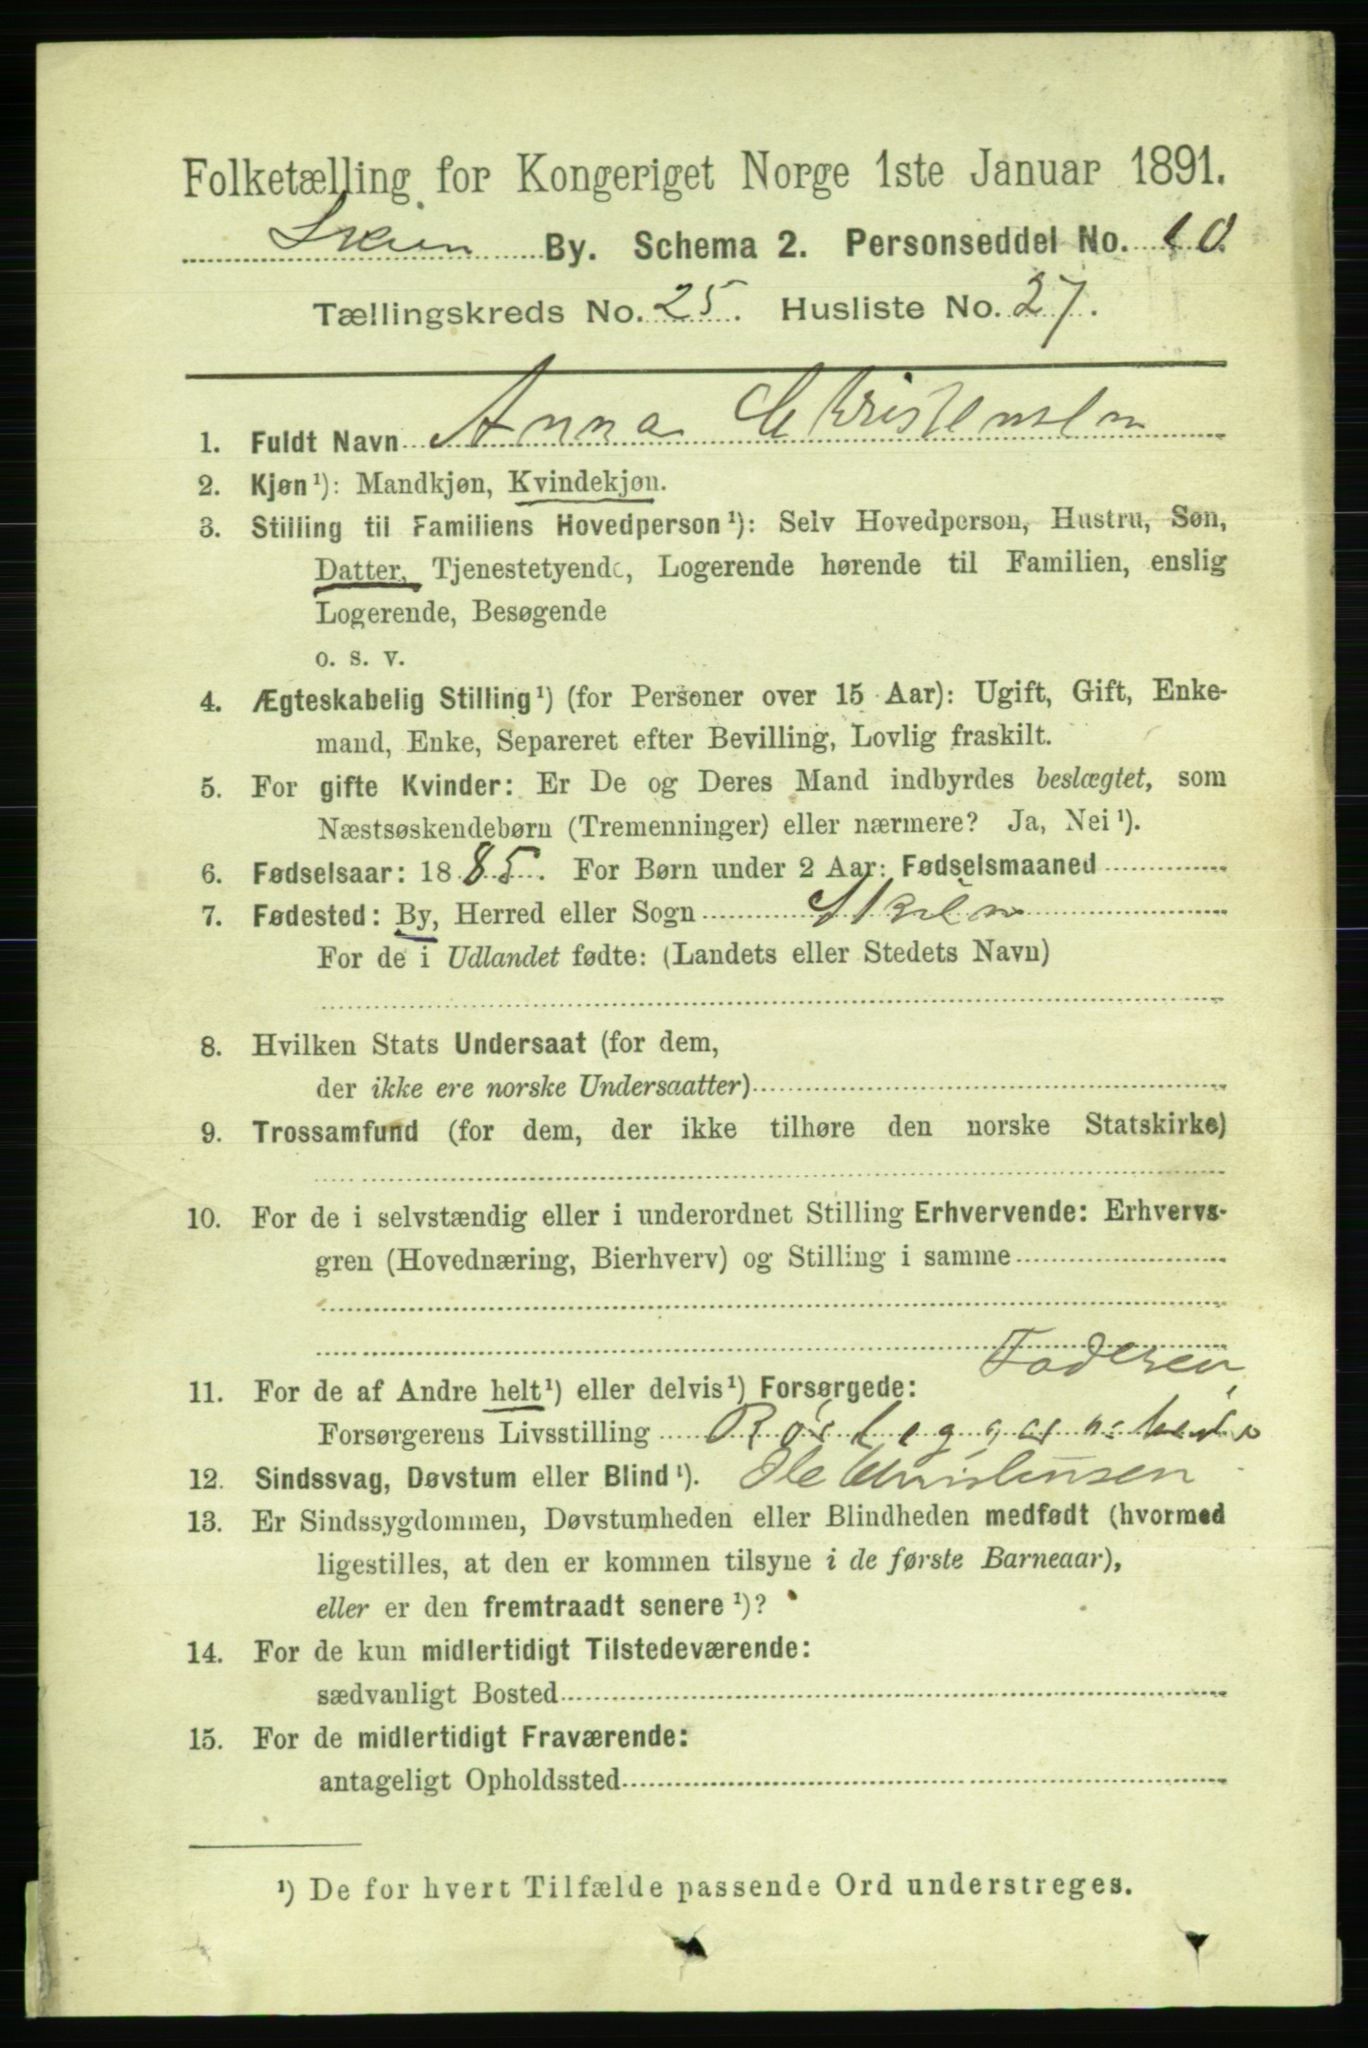 Folketælling for Kongeriget Norge 1ste Januar 1891.
Skien By. Schema 2. Personseddel No. 10.
Tællingskreds No. 25. Husliste No. 27.
1. Fuldt Navn Anna Christensen
2. Kjøn¹): Mandkjøn, Kvindekjøn.
3. Stilling til Familiens Hovedperson¹): Selv Hovedperson, Hustru, Søn,
Datter, Tjenestetyende, Logerende hørende til Familien, enslig
Logerende, Besøgende
o. s. v.
4. Ægteskabelig Stilling¹) (for Personer over 15 Aar): Ugift, Gift, Enke-
mand, Enke, Separeret efter Bevilling, Lovlig fraskilt.
5. For gifte Kvinder: Er De og Deres Mand indbyrdes beslægtet, som
Næstsøskendebørn (Tremenninger) eller nærmere? Ja, Nei¹).
6. Fødselsaar: 1885. For Børn under 2 Aar: Fødselsmaaned
7. Fødested: By, Herred eller Sogn Skien
For de i Udlandet fødte: (Landets eller Stedets Navn)
8. Hvilken Stats Undersaat (for dem,
der ikke ere norske Undersaatter)
9. Trossamfund (for dem, der ikke tilhøre den norske Statskirke)
10. For de i selvstændig eller i underordnet Stilling Erhvervende: Erhvervs-
gren (Hovednæring, Bierhverv) og Stilling i samme
Faderen
11. For de af Andre helt¹) eller delvis¹) Forsørgede:
Forsørgerens Livsstilling
12. Sindssvag, Døvstum eller Blind¹). Ole Christensen
13. Er Sindssygdommen, Døvstumheden eller Blindheden medfødt (hvormed
ligestilles, at den er kommen tilsyne i de første Barneaar),
eller er den fremtraadt senere¹)?
14. For de kun midlertidigt Tilstedeværende:
sædvanligt Bosted
15. For de midlertidigt Fraværende:
antageligt Opholdssted
¹) De for hvert Tilfælde passende Ord understreges.